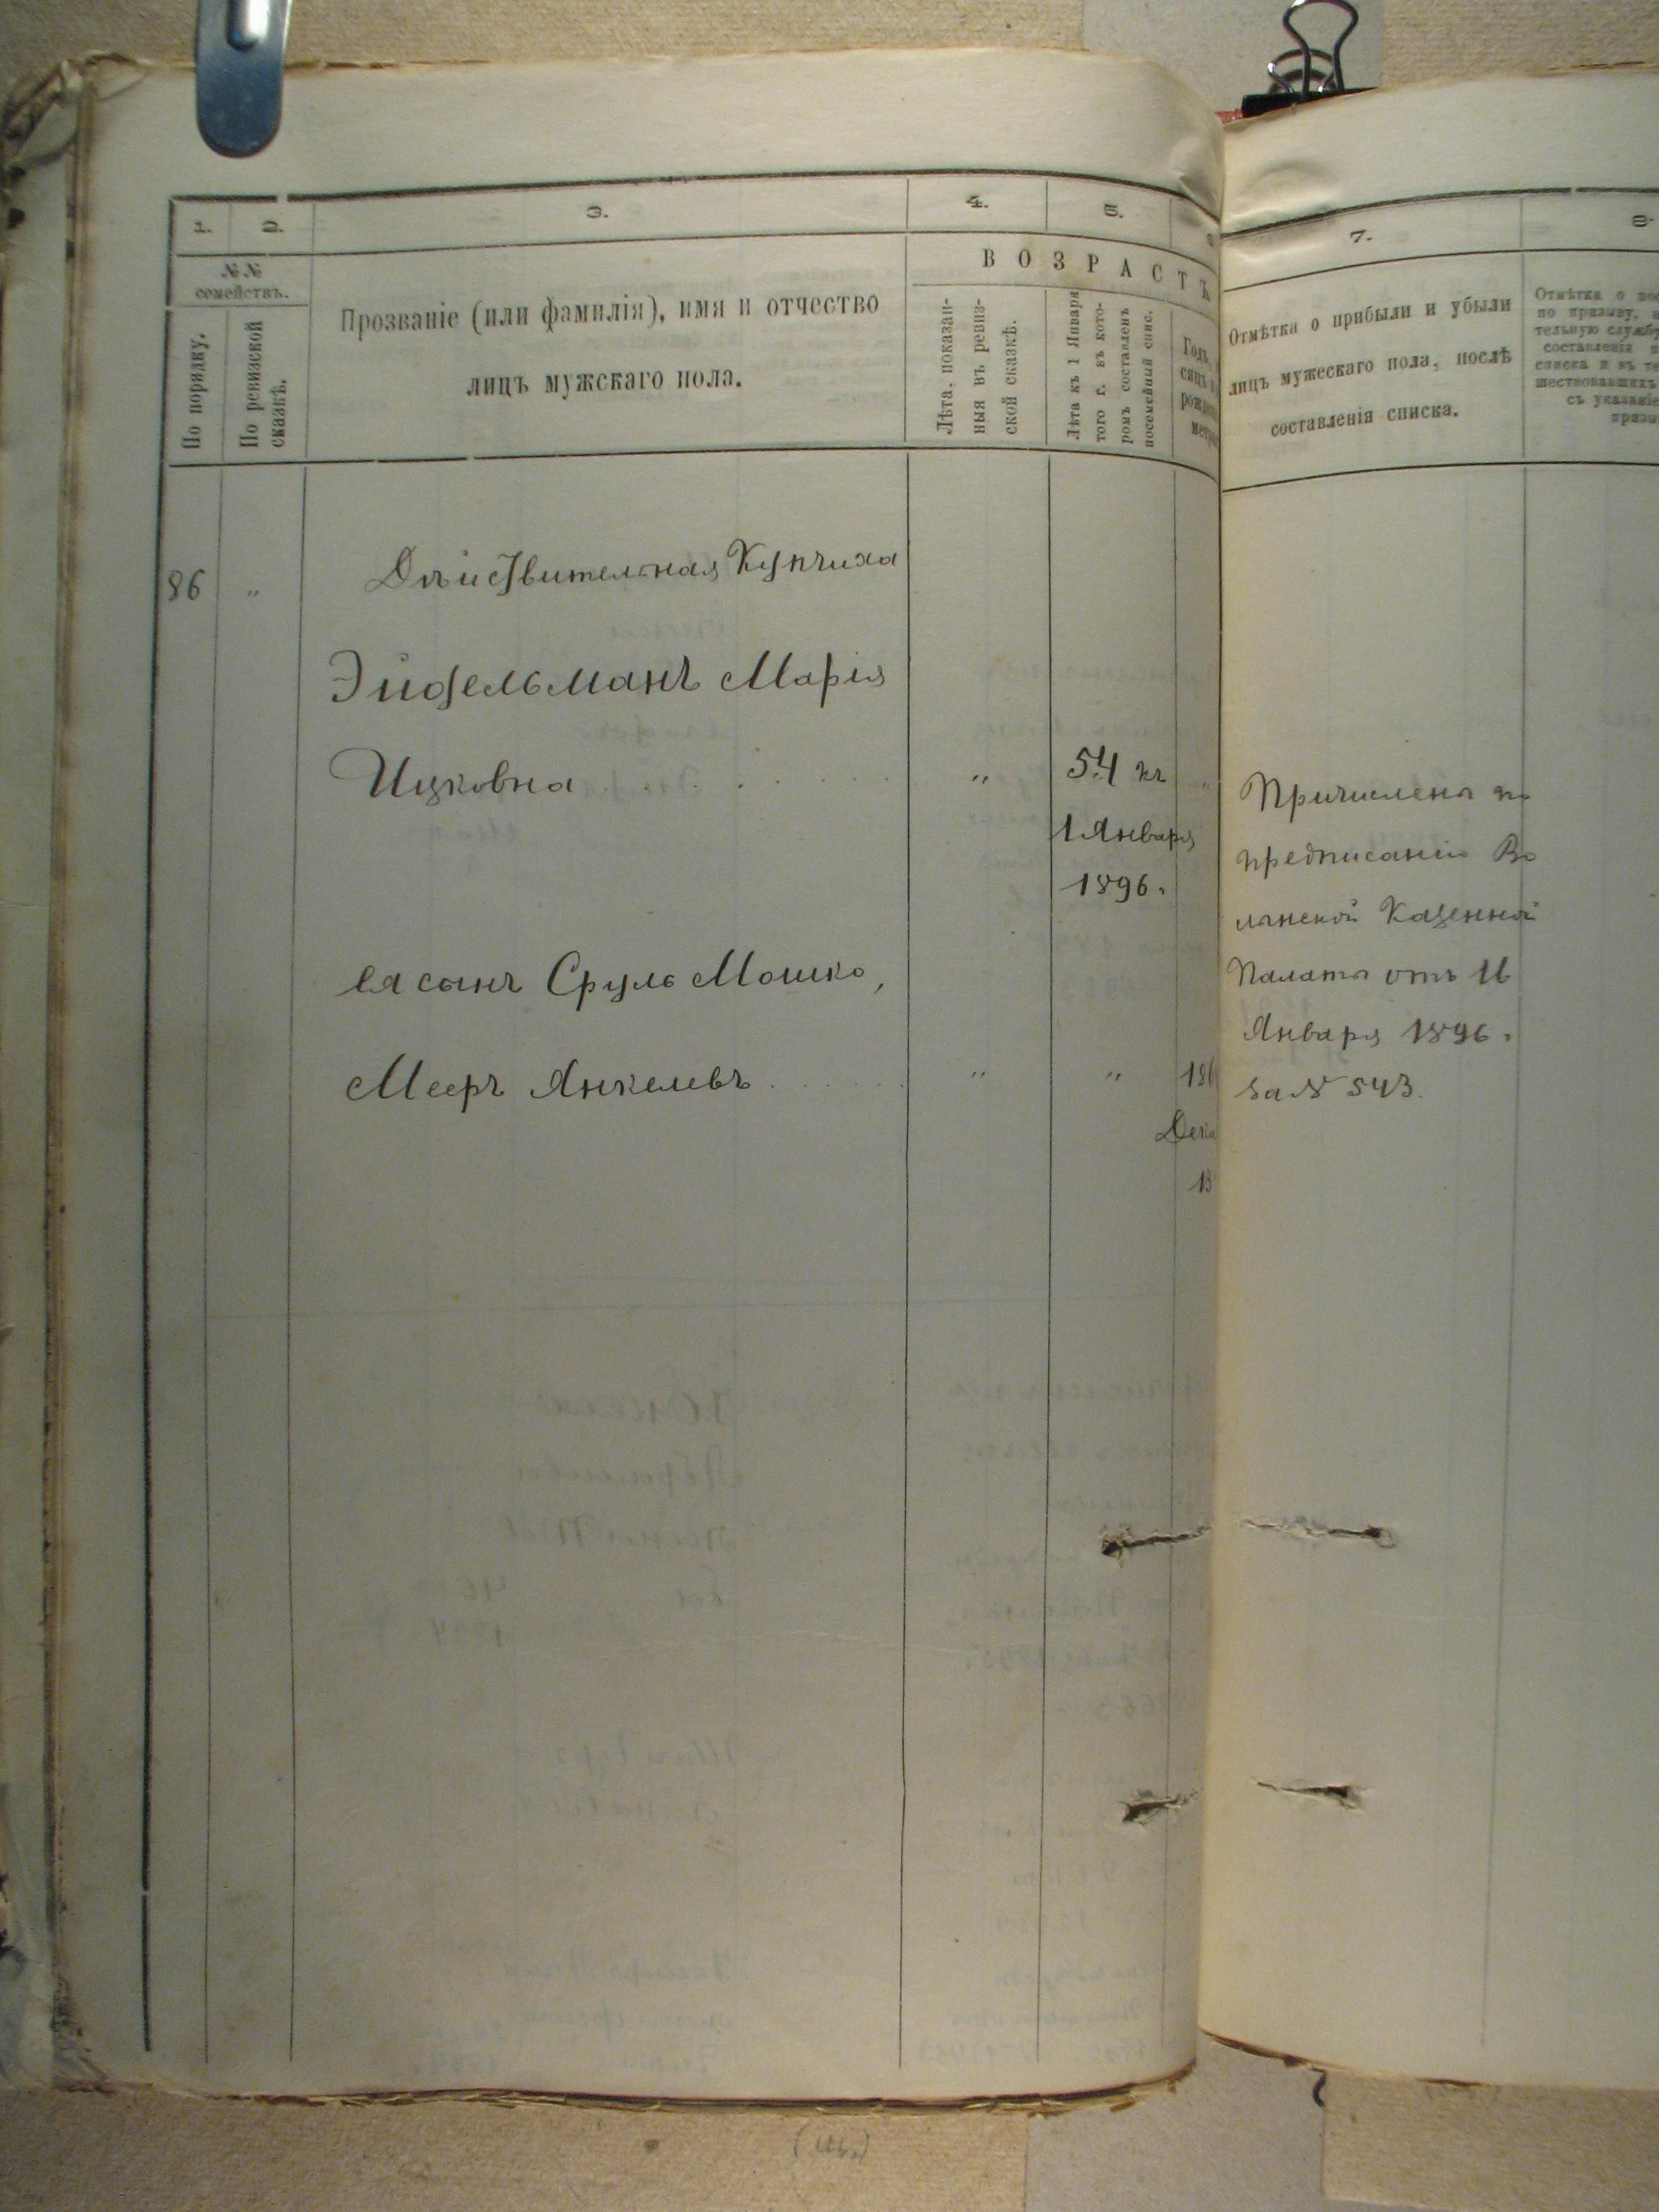 1.
2.
3.
4.
5.
№№
семействъ.
По порядку.
По ревизской
сказкѣ.
Прозваніе (или фамилія), имя и отчество
лицъ мужскаго пола.
ВОЗРАСТЪ
Лѣта, показан-
ныя въ ревиз-
ской сказкѣ.
Лѣта къ 1 Января
того г. въ кото-
ромъ составленъ
посемейный спис.
86 „ Дѣйствительная Купчиха
Эйдельманъ Марія
Ицковна „ 54 къ
1 Января
1896.
ея сынъ Сруль Мошко,
Мееръ Янкелевъ „ „ 186
Дека
18
7.
8.
Отмѣтка о прибыли и убыли
лицъ мужескаго пола, послѣ
составленія списка.
Отмѣтка о
по призыву,
тельную службу
составленія
списка и въ те
шествовавшихъ
съ указаніе
призы
Причислена по
предписанію Во
лынской Казенной
Палаты отъ 11
Января 1896.
за № 543.